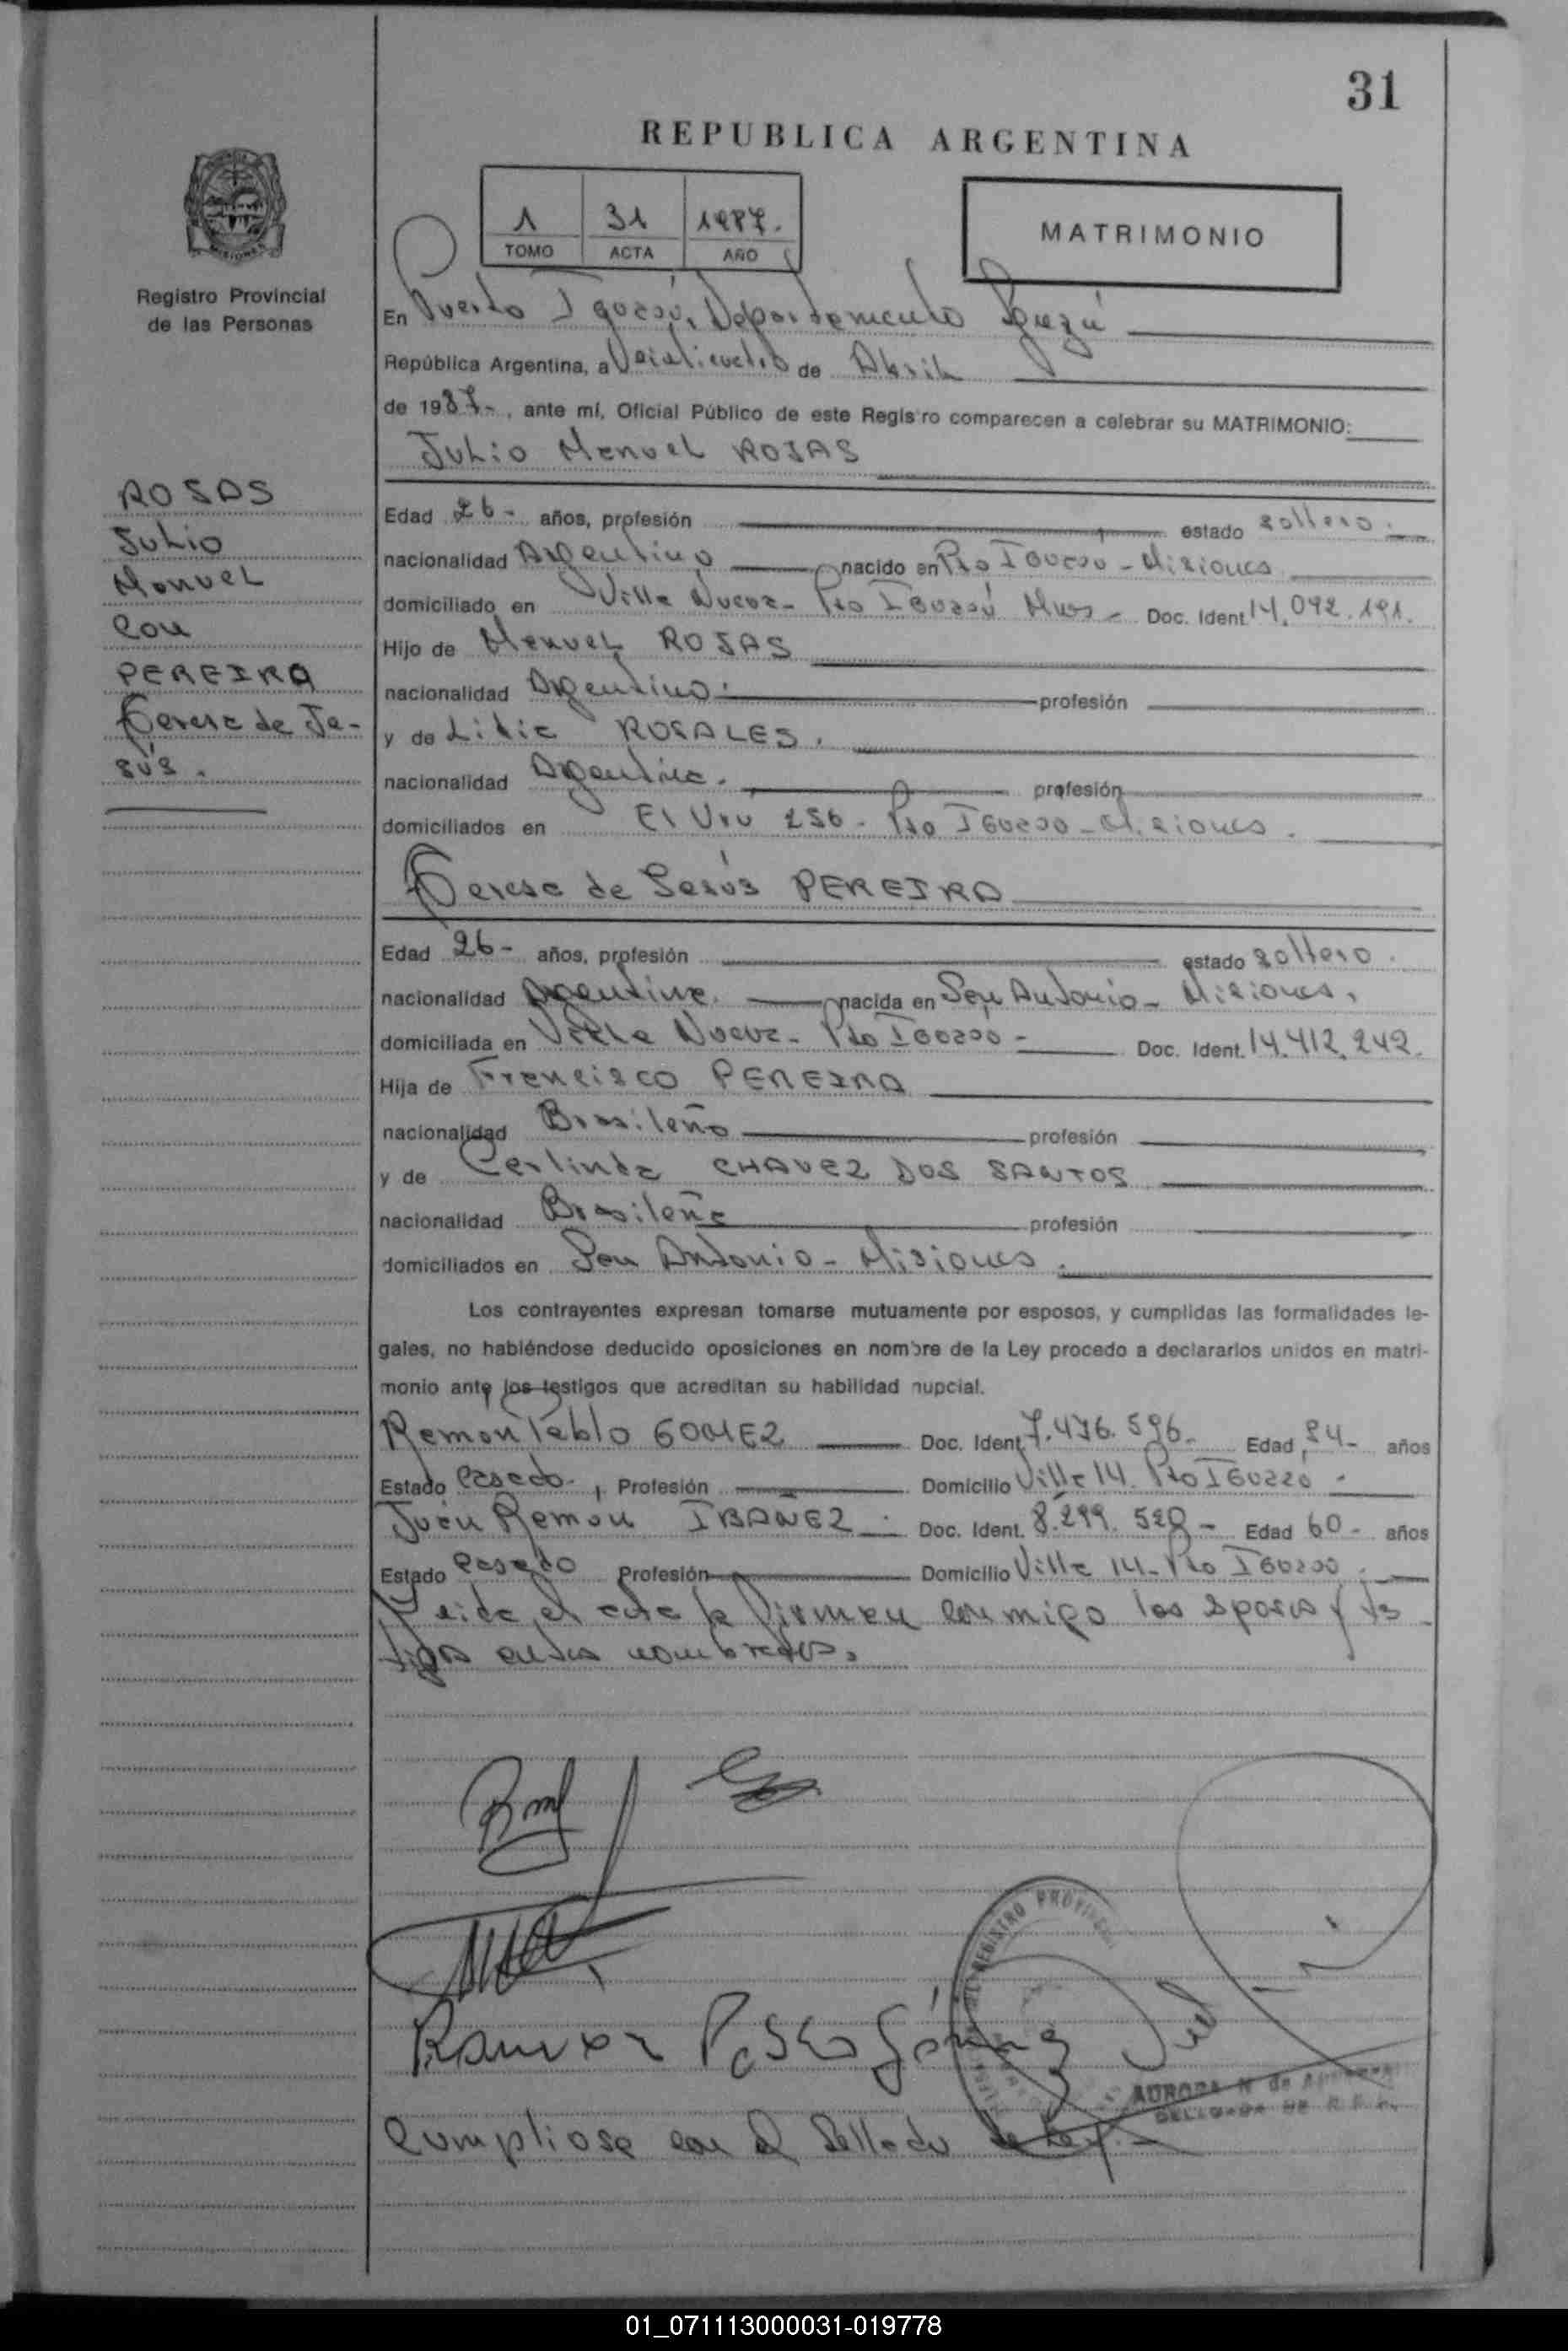 31
REPUBLICA ARGENTINA
1 31 1987.
TOMO ACTA AÑO
MATRIMONIO
Registro Provincial
de las Personas
ROJAS
Julio
Manuel
con
PEREIRA
Teresa de Je-
sús.
En Puerto Iguazú, Departamento Iguazú
República Argentina, a Veinticuatro de Abril
de 1987-, ante mí, Oficial Público de este Registro comparecen a celebrar su MATRIMONIO:
Julio Manuel ROJAS
Edad 26- años, profesión estado soltero.
nacionalidad Argentino nacido en Pto Iguazú - Misiones
domiciliado en Villa Nueva - Pto Iguazú Mnes - Doc. Ident. 14.092.191.
Hijo de Manuel ROJAS
nacionalidad Argentino. profesión
y de Lidia ROSALES.
nacionalidad Argentina. profesión
domiciliados en El Urú 256 - Pto Iguazú - Misiones.
Teresa de Jesús PEREIRA
Edad 26- años, profesión estado soltero.
nacionalidad Argentina. nacida en San Antonio - Misiones.
domiciliada en Villa Nueva - Pto Iguazú - Doc. Ident. 14.412.242.
Hija de Francisco PEREIRA
nacionalidad Brasileño profesión
y de CHAVEZ DOS SANTOS
nacionalidad Brasileña profesión
domiciliados en San Antonio - Misiones.
Los contrayentes expresan tomarse mutuamente por esposos, y cumplidas las formalidades le-
gales, no habiéndose deducido oposiciones en nombre de la Ley procedo a declararlos unidos en matri-
monio ante los testigos que acreditan su habilidad nupcial.
Ramon Pablo GOMEZ Doc. Ident. 7.476.596- Edad años
Estado Casado. , Profesión Domicilio Villa 14. Pto Iguazú -
Juan Ramon IBAÑEZ. Doc. Ident. 8.299.528 - Edad 60- años
Estado Casado Profesión Domicilio Villa 14 - Pto Iguazú.
Leida el acta la firman conmigo los esposos y tes
tigos antes nombrados.
Ramon Pablo Gómez
REGISTRO PROVINCIAL
AURORA N de
DELEGADA DE R.P.P.
Cumpliose con el Sellado de Ley.-
01_071113000031-019778